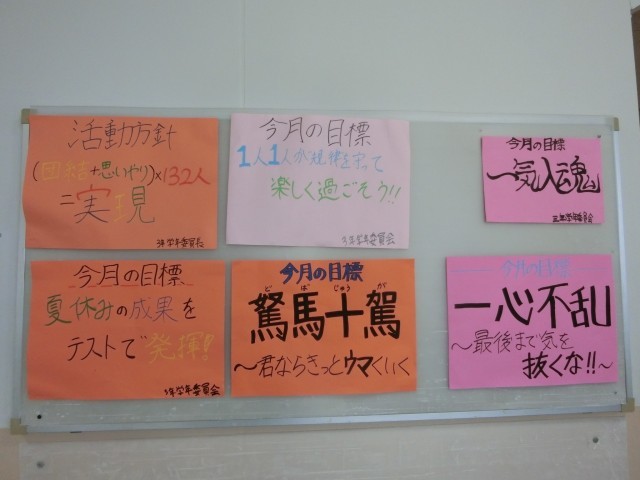 活動方針
(団結+思いやり)×132人
=実現
3年学年委員長
今月の目標
1人1人が規律を守って
楽しく過ごそう!!
3年学年委員会
今月の目標
一気入魂
三年学年委員会
今月の目標
夏休みの成果を
テストで発揮!!
3年学年委員会
今月の目標
どばじゅうが
駑馬十駕
〜君ならきっとウマくいく
今月の目標
一心不乱
〜最後まで気を
抜くな!!〜